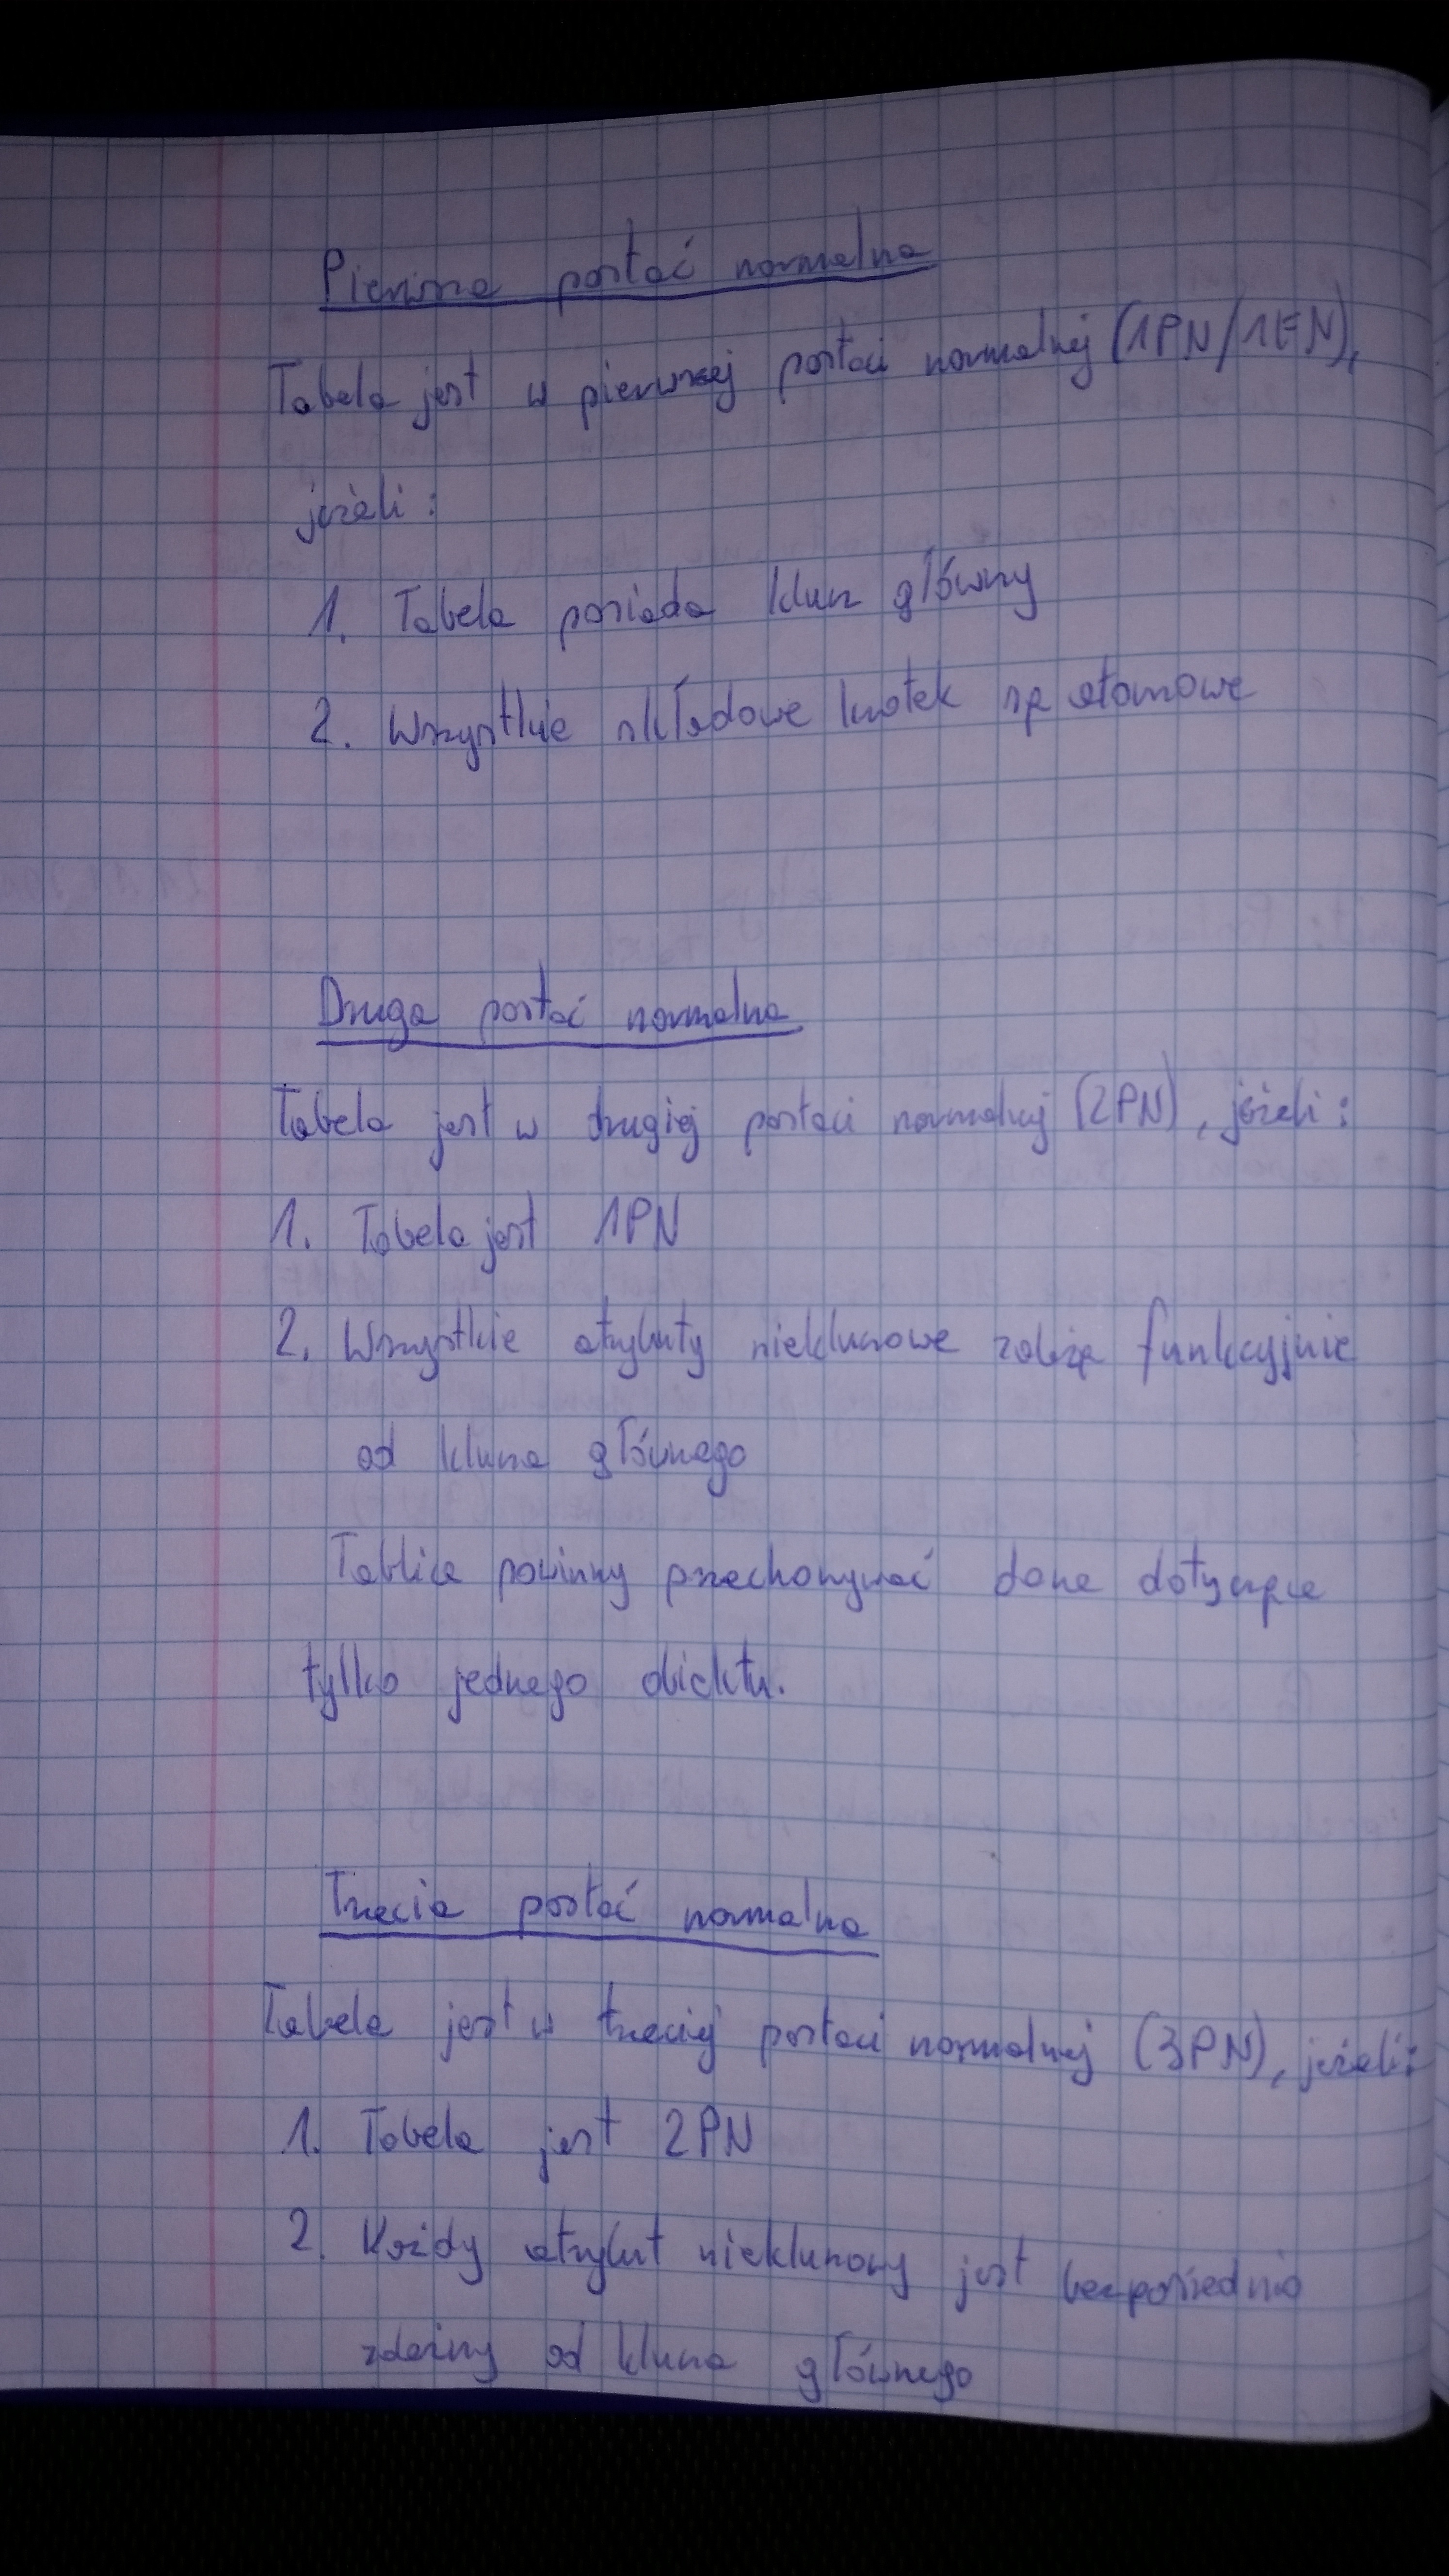 Pierwsza postać normalna
Tabela jest w pierwszej postaci normalnej (1PN/1FN),
jeżeli:
1. Tabela posiada klucz główny
2. Wszystkie składowe krotek są atomowe
Druga postać normalna
Tabela jest w drugiej postaci normalnej (2PN), jeżeli:
1. Tabela jest 1PN
2. Wszystkie atrybuty niekluczowe zależą funkcyjnie
od klucza głównego
Tablica powinny przechowywać dane dotyczące
tylko jednego obiektu.
Trzecia postać normalna
Tabela jest w trzeciej postaci normalnej (3PN), jeżeli:
1. Tabela jest 2PN
2. Każdy atrybut niekluczowy jest bezpośrednio
zależny od klucza głównego